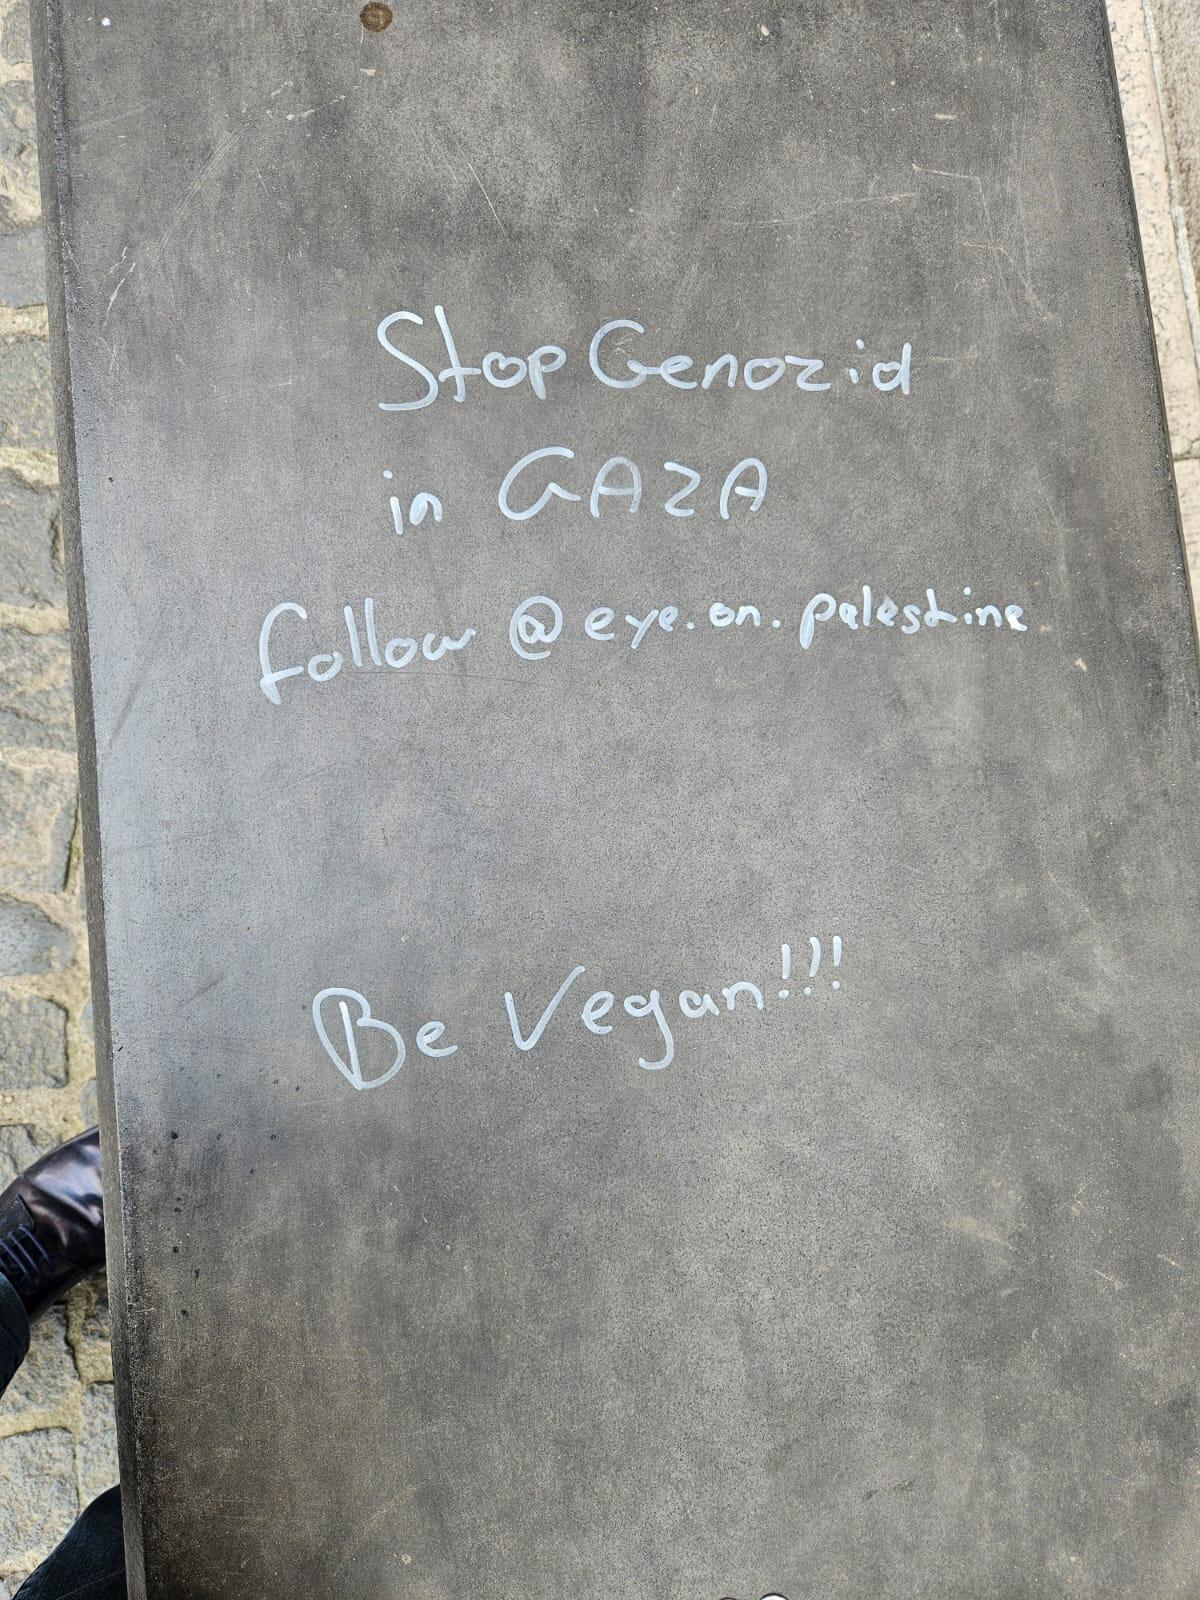 Stop Genozid
in GAZA
follow @eye.on.palestine
Be Vegan!!!